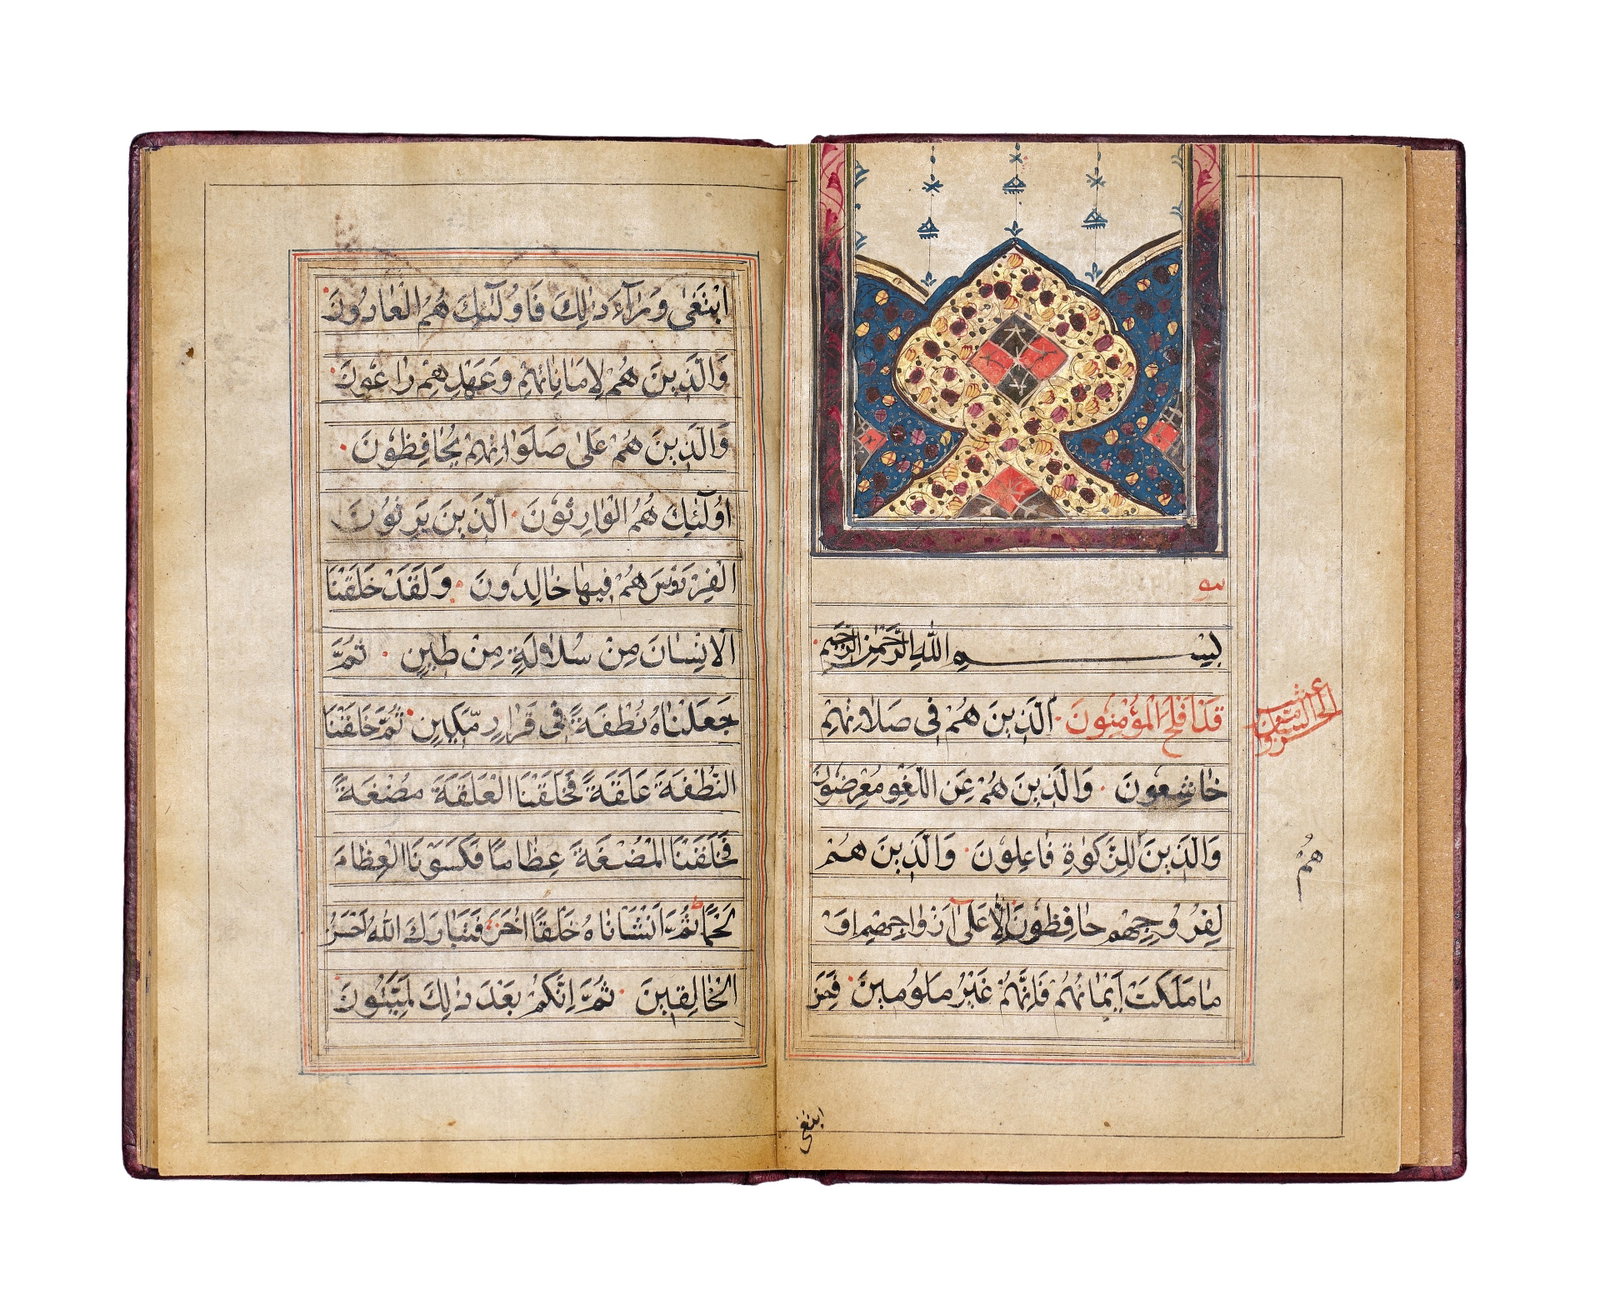 سو
بِسْمِ اللّٰهِ الرَّحْمٰنِ الرَّحِيمِ
قَدْ اَفْلَحَ الْمُؤْمِنُونَ الَّذِينَ هُمْ فِى صَلَاتِهِمْ
خَاشِعُونَ وَالَّذِينَ هُمْ عَنِ اللَّغْوِ مُعْرِضُونَ
وَالَّذِينَ لِلزَّكٰوةِ فَاعِلُونَ وَالَّذِينَ هُمْ
لِفُرُوجِهِمْ حَافِظُونَ اِلَّا عَلٰى اَزْوَاجِهِمْ اَوْ
مَا مَلَكَتْ اَيْمَانُهُمْ فَاِنَّهُمْ غَيْرُ مَلُومِينَ فَمَنِ
ابتغى
ابْتَغٰى وَرَآءَ ذٰلِكَ فَاُولٰئِكَ هُمُ الْعَادُونَ
وَالَّذِينَ هُمْ لِاَمَانَاتِهِمْ وَعَهْدِهِمْ رَاعُونَ
وَالَّذِينَ هُمْ عَلٰى صَلَوَاتِهِمْ يُحَافِظُونَ
اُولٰئِكَ هُمُ الْوَارِثُونَ الَّذِينَ يَرِثُونَ
الْفِرْدَوْسَ هُمْ فِيهَا خَالِدُونَ وَلَقَدْ خَلَقْنَا
الْاِنْسَانَ مِنْ سُلَالَةٍ مِنْ طِينٍ ثُمَّ
جَعَلْنَاهُ نُطْفَةً فِى قَرَارٍ مَّكِينٍ ثُمَّ خَلَقْنَا
النُّطْفَةَ عَلَقَةً فَخَلَقْنَا الْعَلَقَةَ مُضْغَةً
فَخَلَقْنَا الْمُضْغَةَ عِظَامًا فَكَسَوْنَا الْعِظَامَ
لَحْمًا ثُمَّ اَنْشَاْنَاهُ خَلْقًا اٰخَرَ فَتَبَارَكَ اللّٰهُ اَحْسَنُ
الْخَالِقِينَ ثُمَّ اِنَّكُمْ بَعْدَ ذٰلِكَ لَمَيِّتُونَ